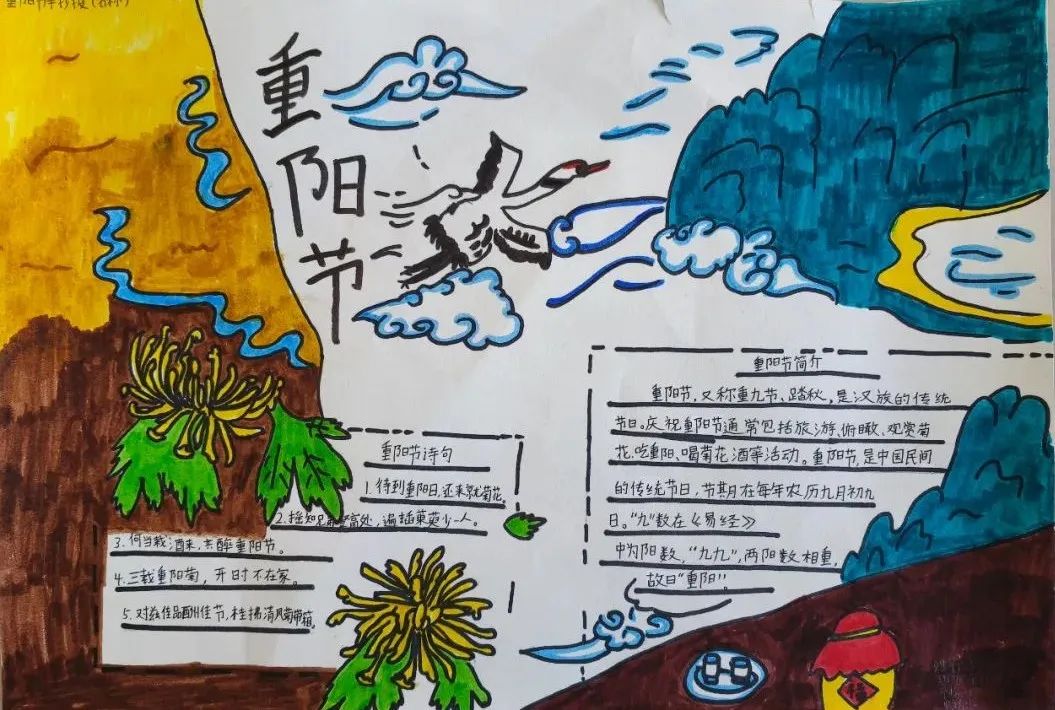 重阳节
重阳节诗句
1.待到重阳日,还来就菊花。
2.摇知兄弟登高处,遍插茱萸少一人。
3.何当载酒来,共醉重阳节。
4.三载重阳菊,开时不在家。
5.对兹佳品酬佳节,桂拂清风菊带霜.
重阳节简介
重阳节,又称重九节、踏秋,是汉族的传统
节日。庆祝重阳节通常包括旅游、俯瞰、观赏菊
花、吃重阳、喝菊花酒等活动。重阳节,是中国民间
的传统节日,节其月在每年农历九月初九
日。“九”数在《易经》
中为阳数,“九九”,两阳数相重,
故曰“重阳”。
福